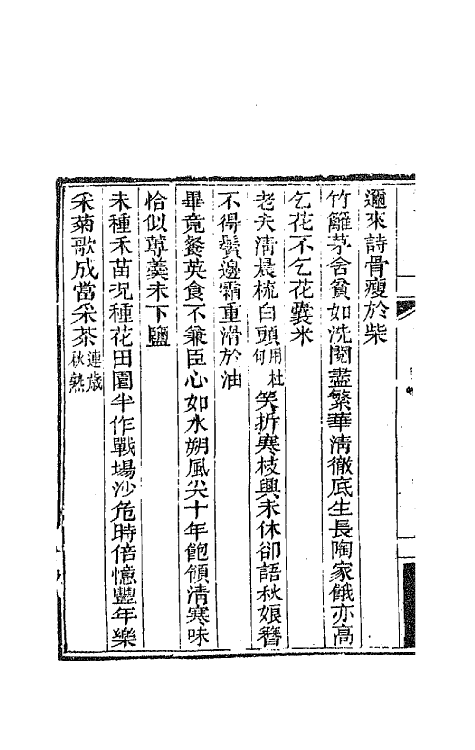 邇來詩骨瘦於柴
竹籬茅舍貧如洗閱盡繁華淸徹底生長陶家餓亦高
乞花不乞花囊米
老夫淸晨梳白頭用杜句笑折寒枝興未休卻語秋娘簪
不得鬢邊霜重滑於油
畢竟餐英食不兼臣心如水朔風尖十年飽領淸寒味
恰似蓴羹未下鹽
未種禾苗況種花田園半作戰場沙危時倍憶豐年樂
采菊歌成當采茶連歲秋熟